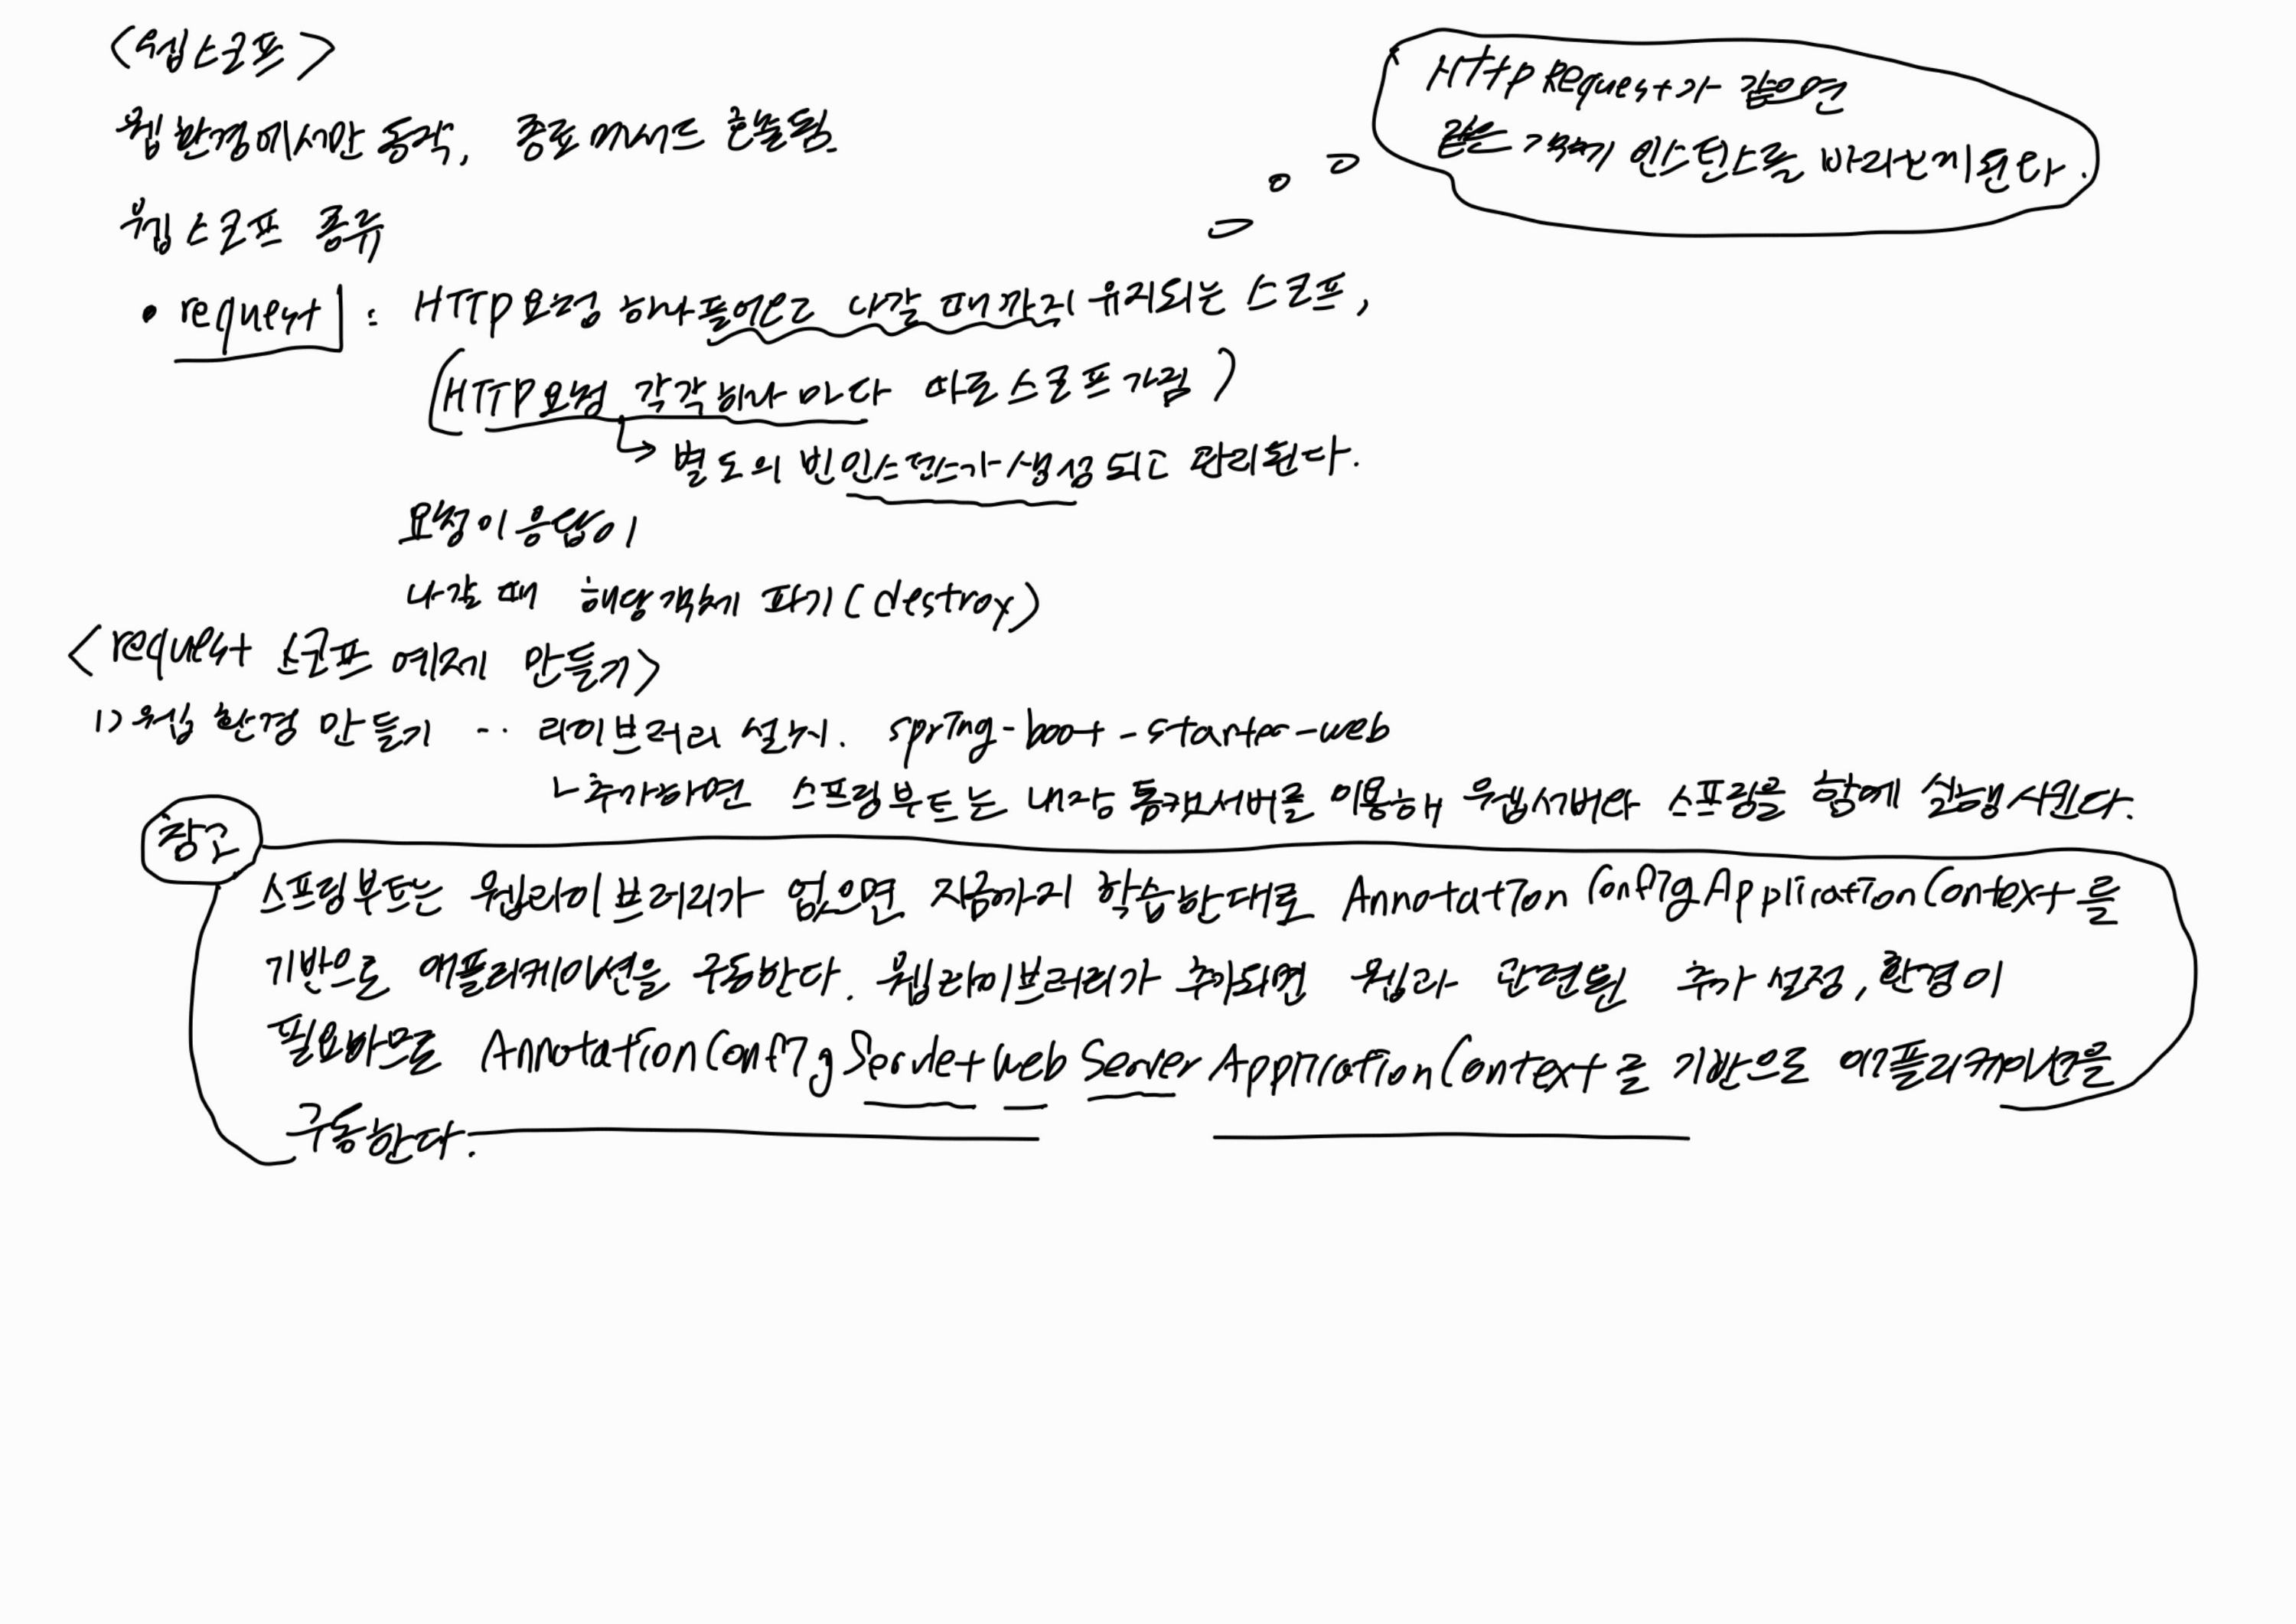 <웹스코프>
웹 환경에서만 동작, 종료 메서드 호출됨.
웹 스코프 종류
Http Request가 같으면
같은 객체 인스턴스를 바라보게된다.
• request : HTTP 요청 하나 들어오고 나갈 때 까지 유지되는 스코프,
(HTTP 요청 각각 하나 마다 따로 스코프 가짐)
↳ 별도의 빈 인스턴스가 생성 되고 관리된다.
요청이 응답이
나갈 때 해당 객체 파기 (destroy)
<request 스코프 예제 만들기>
1> 웹 환경 만들기 ... 라이브러리 설치. spring-boot-starter-web
ㄴ추가하면 스프링부트는 내장 톰캣서버를 이용해 웹서버와 스프링을 함께 실행시킨다.
참고
스프링부트는 웹라이브러리가 없으면 지금까지 학습한대로 AnnotationConfigApplicationContext를
기반으로 애플리케이션을 구동한다. 웹라이브러리가 추가되면 웹과 관련된 추가 설정, 환경이
필요하므로 AnnotationConfigServletWebServerApplicationContext를 기반으로 애플리케이션을
구동한다.